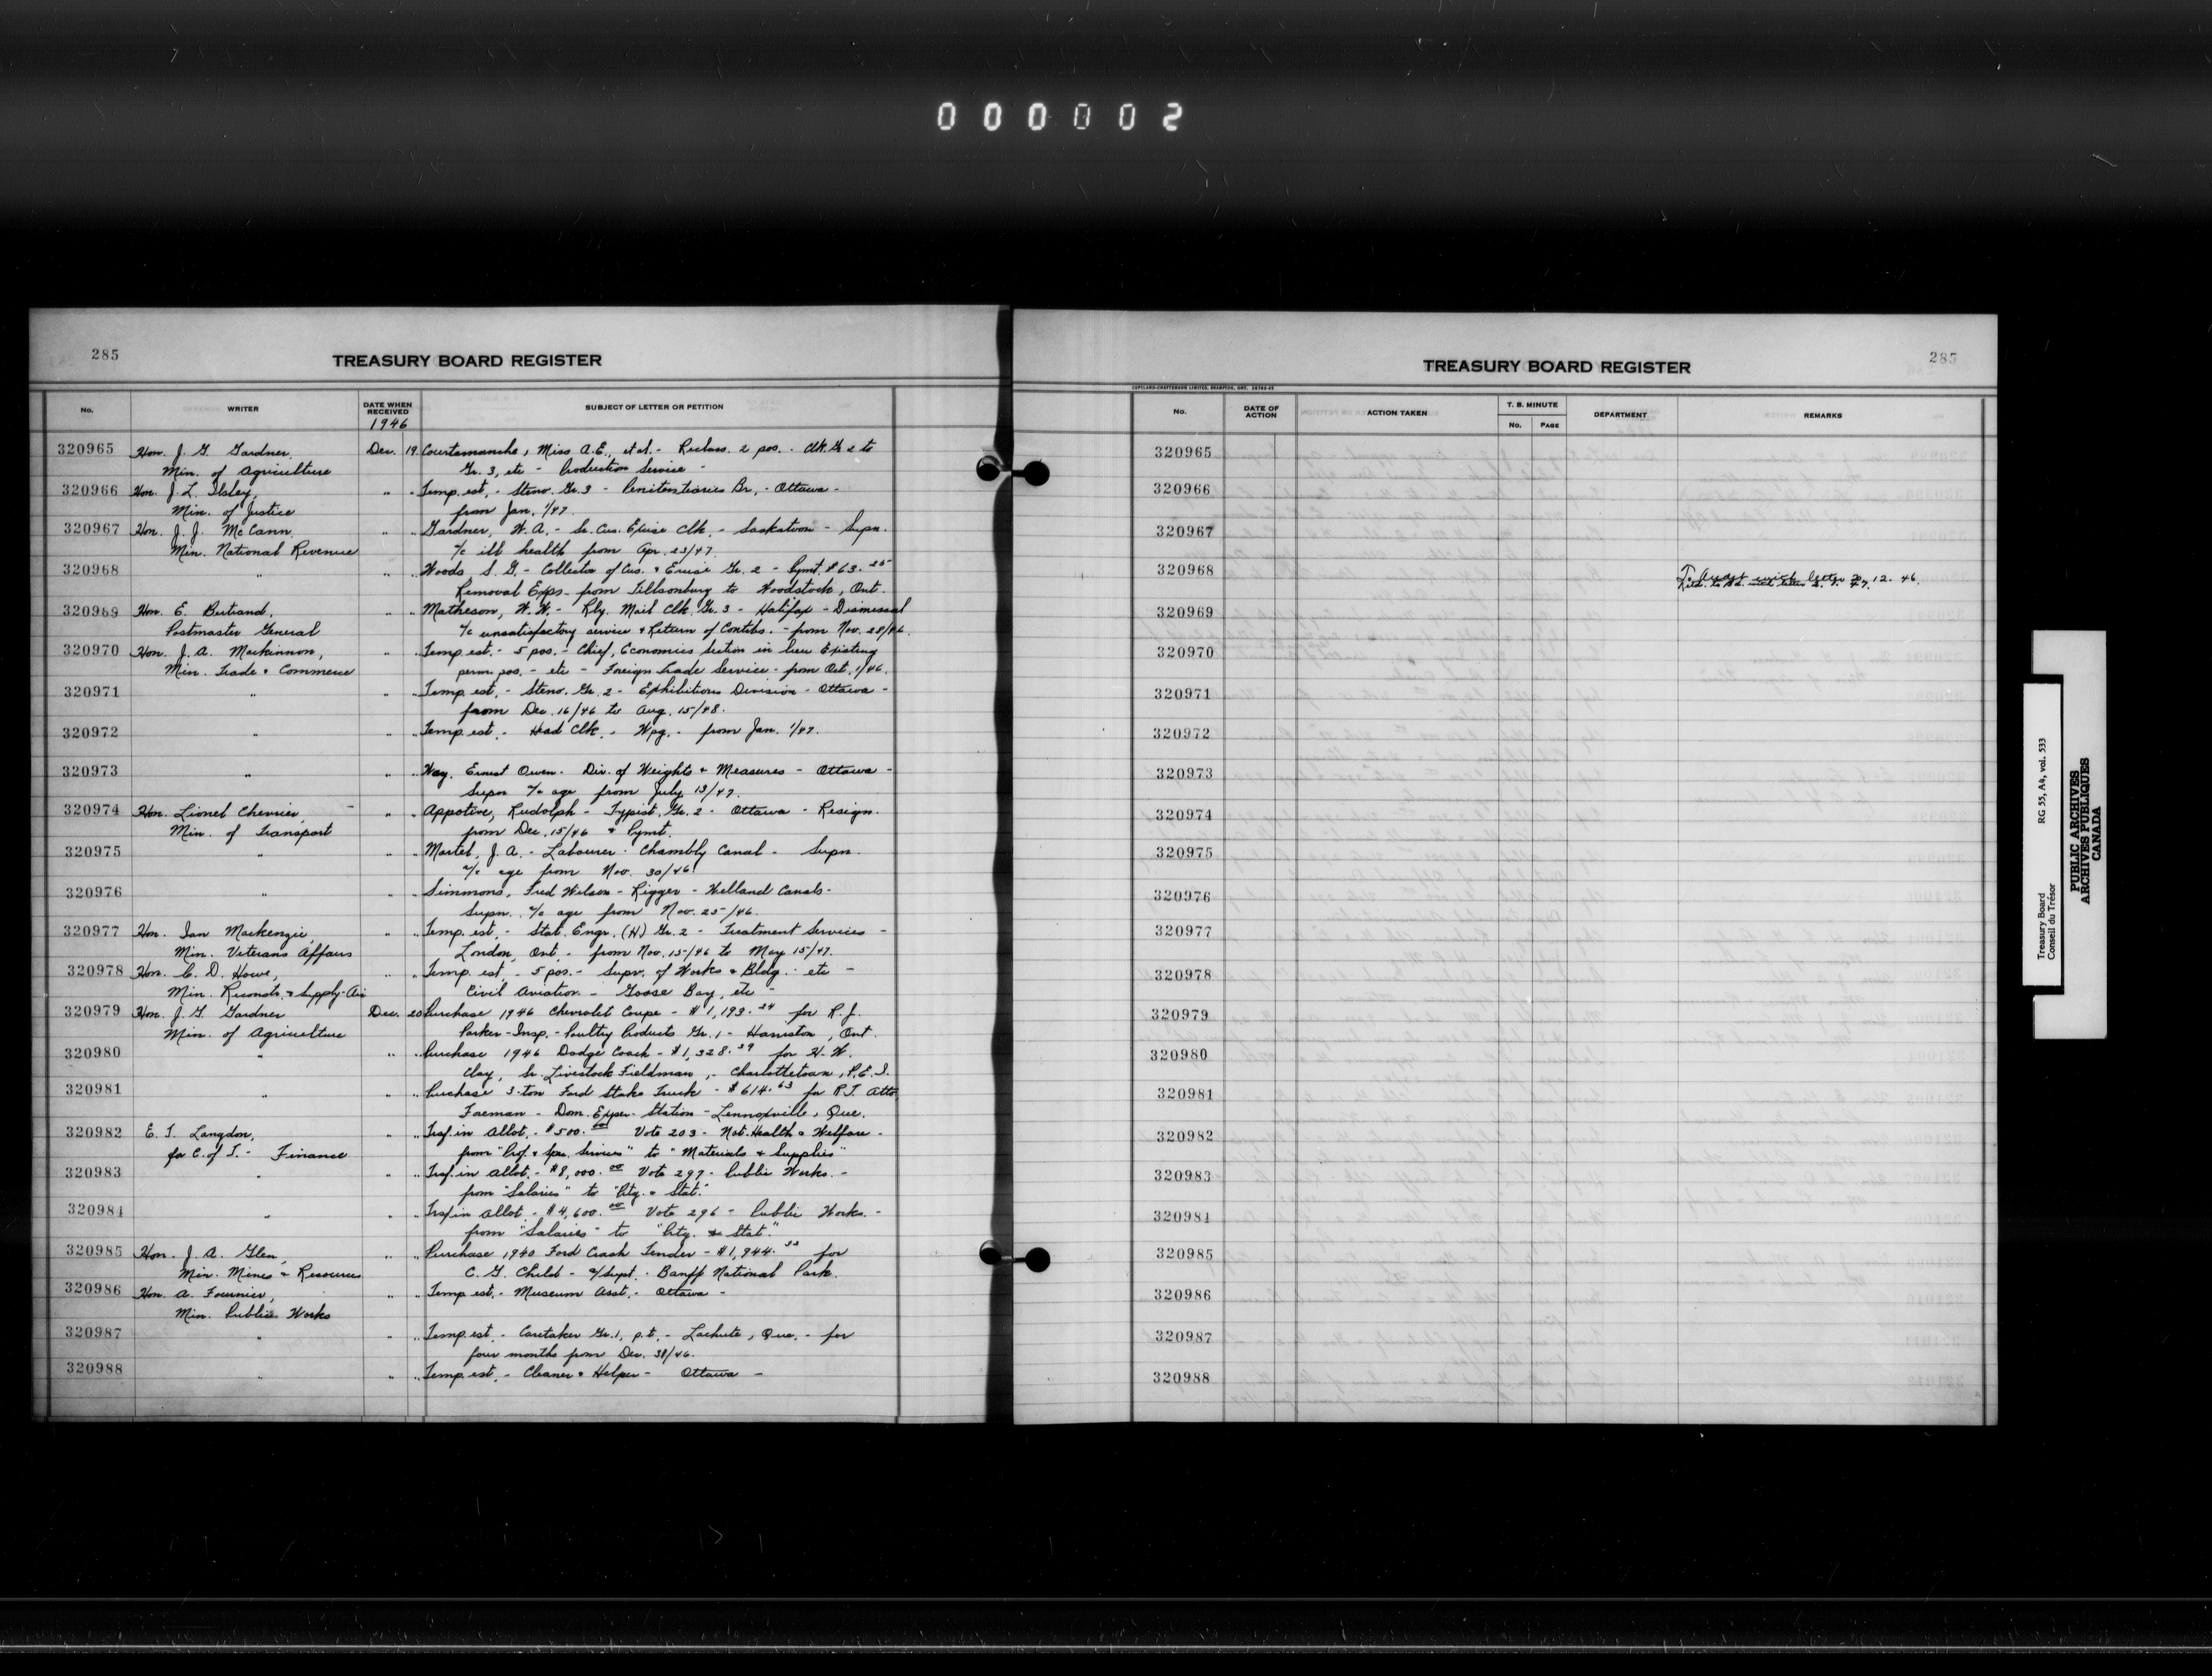 000002
285
TREASURY BOARD REGISTER
No. WRITER DATE WHEN RECEIVED SUBJECT OF LETTER OR PETITION
1946
320965 Hon. J. G. Gardner, Dec. 19 Courtemanche, Miss A.E., et al. - Reclass. 2 pos. - Clk. Gr. 2 to
Min. of Agriculture Gr. 3, etc - Production Service -
320966 Hon. J. L. Ilsley, " " Temp. est. - Steno. Gr. 3 - Penitentiaries Br. - Ottawa -
Min. of Justice from Jan. 1/47.
320967 Hon. J. J. McCann, " " Gardner, W. A. - Sr. Cus. Excise Clk. - Saskatoon - Supn.
Min. National Revenue a/c ill health from Apr. 23/47.
320968 " " " Woods S. G. - Collector of Cus. & Excise Gr. 2 - Pymt. $63.25
Removal Exps - from Tillsonburg to Woodstock, Ont.
320969 Hon. E. Bertrand, " " Matheson, W. W. - Rly. Mail Clk. Gr. 3 - Halifax - Dismissal
Postmaster General a/c unsatisfactory service & Return of Contibs. - from Nov. 28/46.
320970 Hon. J. A. Mackinnon, " " Temp. est. - 5 pos. - Chief, Economics Section in lieu Existing
Min. Trade & Commerce perm. pos. - etc - Foreign Trade Service - from Oct. 1/46.
320971 " " " Temp. est. - Steno. Gr. 2 - Exhibitions Division - Ottawa -
from Dec. 16/46 to Aug. 15/48.
320972 " " " Temp. est. - Head Clk. - Wpg. - from Jan. 1/47.
320973 " " " Way, Ernest Owen - Div. of Weights & Measures - Ottawa -
Supn a/c age from July 13/47.
320974 Hon. Lionel Chevrier, " " Appotive, Rudolph - Typist, Gr. 2 - Ottawa - Resign.
Min. of Transport from Dec. 15/46 & Pymt.
320975 " " " Martel, J. A. - Labourer - Chambly Canal - Supn.
a/c age from Nov. 30/46.
320976 " " " Simmons, Fred Wilson - Rigger - Welland Canals -
Supn. a/c age from Nov. 25/46.
320977 Hon. Ian Mackenzie, " " Temp. est. - Stat. Engr. (H) Gr. 2 - Treatment Services -
Min. Veterans Affairs London, Ont. - from Nov. 15/46 to May 15/47.
320978 Hon. C. D. Howe, " " Temp. est. - 5 pos. - Supv. of Works & Bldg. - etc -
Min. Reconstr. & Supply-Air Civil Aviation - Goose Bay, etc -
320979 Hon. J. G. Gardner Dec. 20 Purchase 1946 Chevrolet Coupe - $1,193.24 for R. J.
Min. of Agriculture Parker - Insp. - Poultry Products Gr. 1 - Harriston, Ont.
320980 " " " Purchase 1946 Dodge Coach - $1,328.39 for H. W.
Clay, Sr. Livestock Fieldman, - Charlottetown, P.E.I.
320981 " " " Purchase 3-ton Ford Stake Truck - $614.63 for R.T. Atto,
Foreman - Dom. Exper. Station - Lennoxville, Que.
320982 E. T. Langdon, " " Trsf. in Allot. - $500.00 Vote 203 - Nat. Health & Welfare -
for C. of T. - Finance from "Prof. & Spec. Services" to "Materials & Supplies"
320983 " " " Trsf. in Allot. - $8,000.00 Vote 297 - Public Works. -
from "Salaries" to "Ptg. & Stat."
320984 " " " Trsf in Allot - $4,600.00 Vote 296 - Public Works. -
from "Salaries" to "Ptg. & Stat."
320985 Hon. J. A. Glen, " " Purchase 1940 Ford Crash Tender - $1,944.33 for
Min. Mines & Resources C. G. Child - a/Supt. - Banff National Park.
320986 Hon. A. Fournier, " " Temp est. - Museum Asst. - Ottawa -
Min. Public Works
320987 " " " Temp. est. - Caretaker Gr. 1, p.t. - Lachute, Que. - for
four months from Dec. 31/46.
320988 " " " Temp. est. - Cleaner & Helper - Ottawa -
TREASURY BOARD REGISTER
285
COPELAND-CHATTERSON LIMITED, BRAMPTON, ONT.
No. DATE OF ACTION ACTION TAKEN T. B. MINUTE DEPARTMENT REMARKS
No. PAGE
320965
320966
320967
320968 letter 12. 46.
320969
320970
320971
320972
320973
320974
320975
320976
320977
320978
320979
320980
320981
320982
320983
320984
320985
320986
320987
320988
Treasury Board RG 55, A4, vol. 533
Conseil du Trésor
PUBLIC ARCHIVES
ARCHIVES PUBLIQUES
CANADA